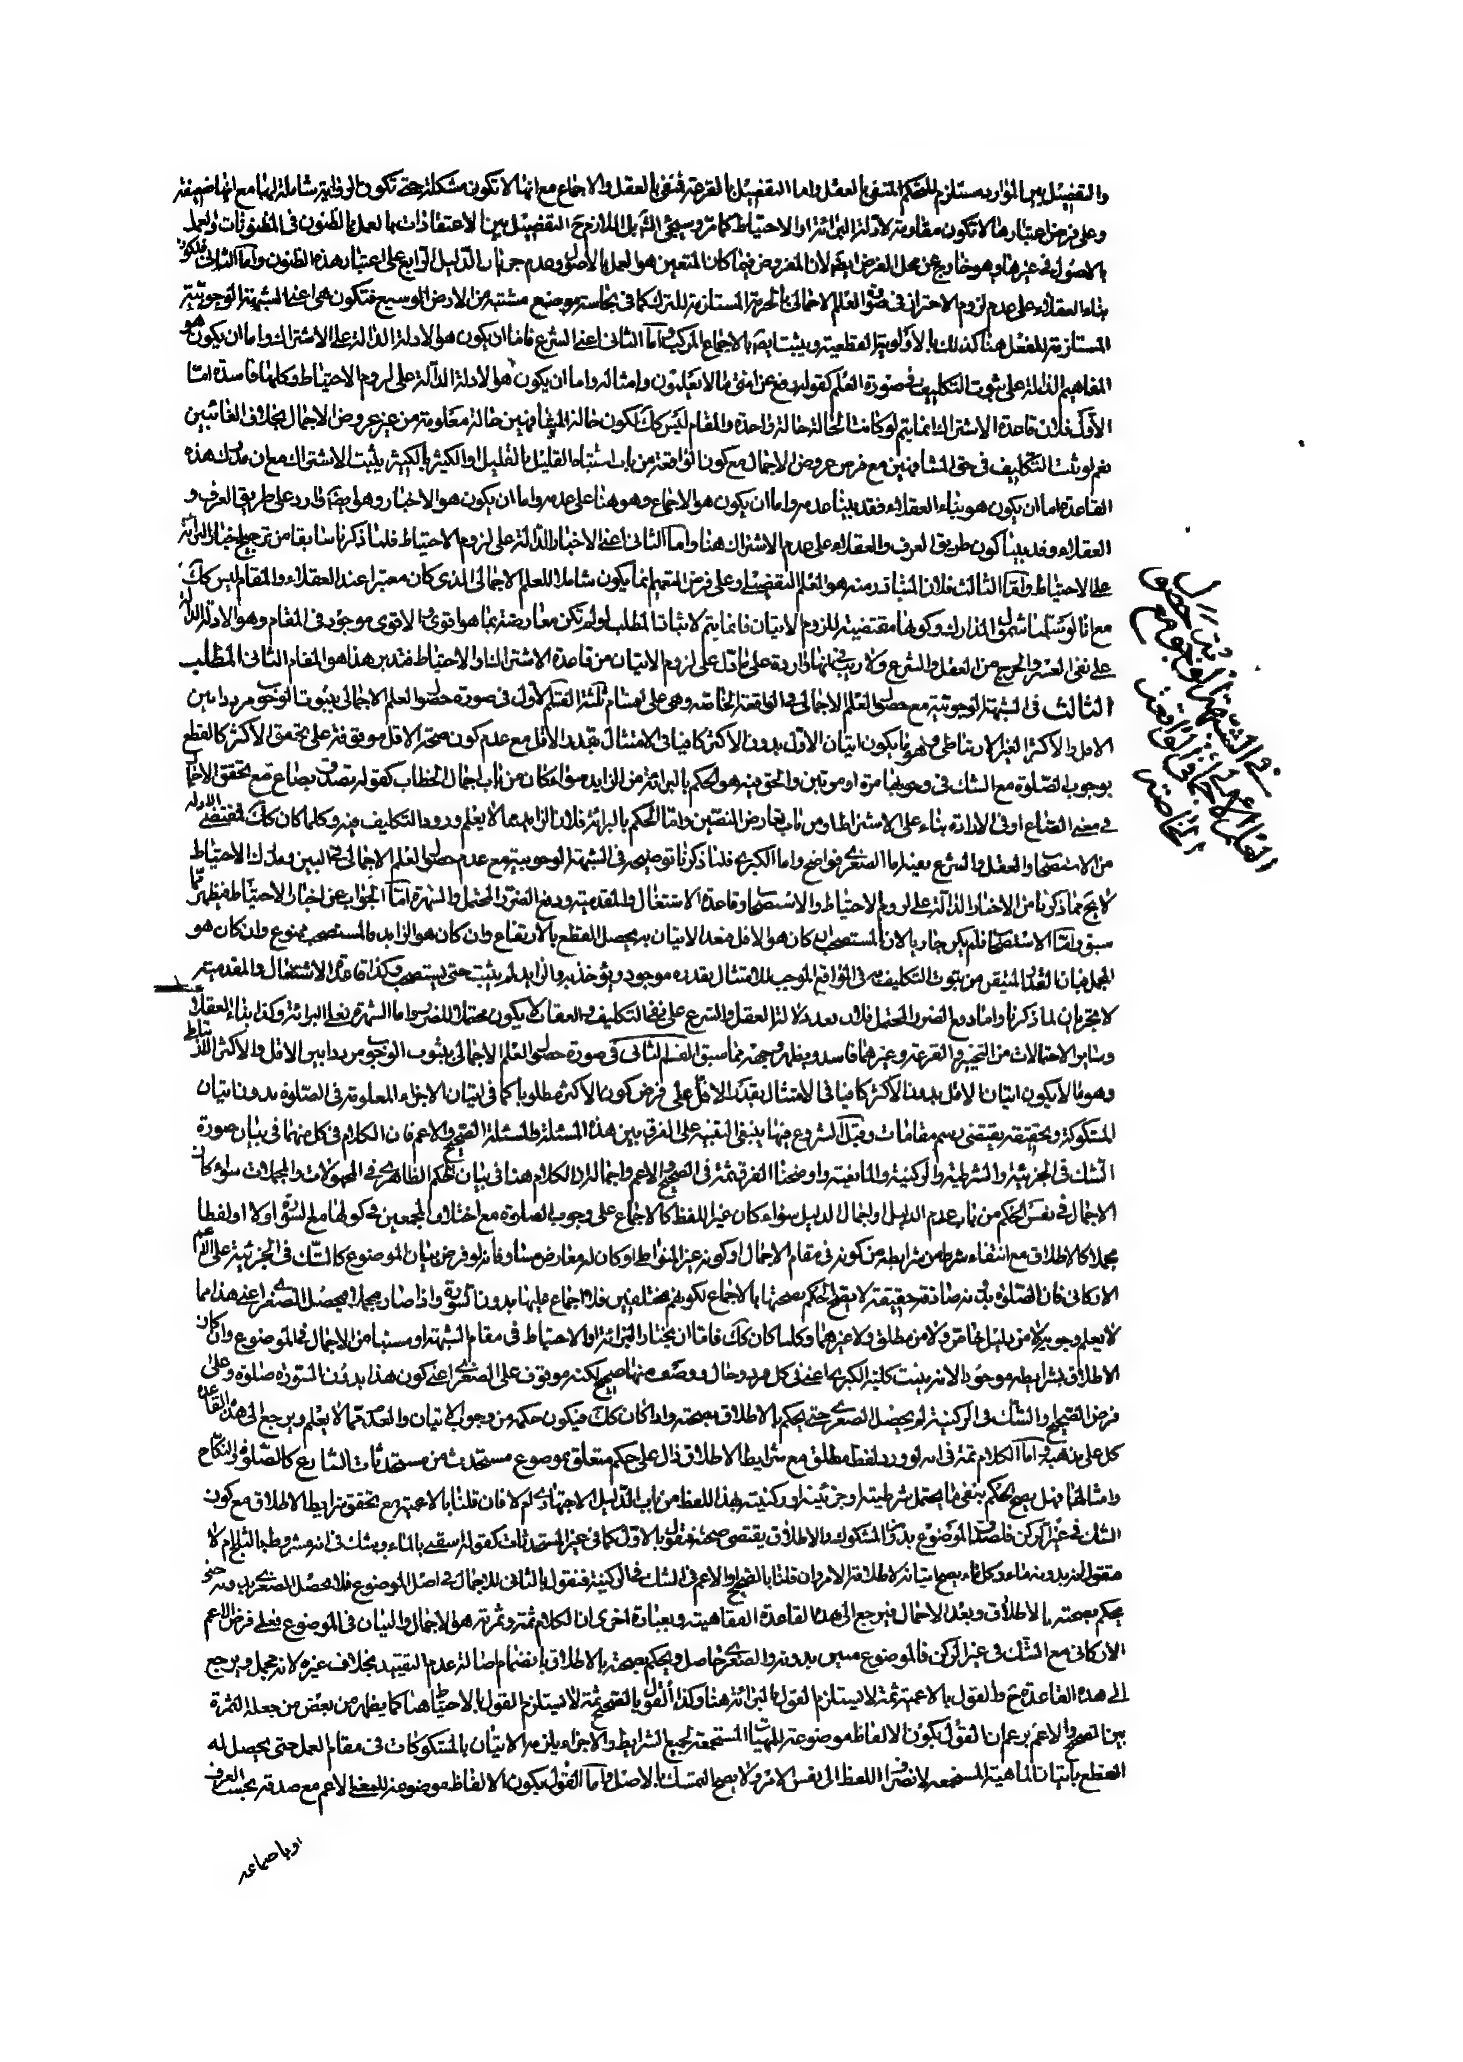 والتفصيل بين الموارد مستلزم للحكم المنفى بالعقل واما التفصيل بالقرعة فنفى بالعقل والاجماع مع انها لا تكون مشكلة حتى تكون الرواية شاملة لها مع انها ضعيفة
وعلى فرض اعتبارها لا تكون مقاومة لادلة البرائة او الاحتياط كما مر وسيجئ بل اللازم ح التفصيل بين الاعتقادات بالعمل بالظنون فى المظنونات والعمل
بالاصول فى غيرها وهو خارج عن محل الفرض ايضا لان المفروض فيما كان المتعين هو العمل بالاصول وعدم جريان الدليل الرابع على اعتبار هذه الظنون واما الثانى فلكون
بناء العقلاء على عدم لزوم الاحتراز فى صورة العلم الاجمالى بالحرمة المستلزمة للترك كما فى نجاسة موضع مشتبه من الارض الوسيع فتكون هى اعنى الشبهة الوجوبية
المستلزمة للفعل هنا كذلك بالاولوية القطعية ويثبت ايضا بالاجماع المركب واما الثانى اعنى الشرع فاما ان يكون هو الادلة الدالة على الاشتراك واما ان يكون هو
المفاهيم الدالة على ثبوت التكليف فى صورة العلم كقوله رفع عن امتى ما لا يعلمون وامثاله واما ان يكون هو الادلة الدالة على لزوم الاحتياط وكلها فاسدة اما
الاول فلان قاعدة الاشتراك انما يتم لو كانت الحالة حالة واحدة والمقام ليس كك لكون حالة المشافهين حالة معلومة من غير عروض الاجمال بخلاف الغائبين
نعم لو ثبت التكليف فى حق المشافهين مع فرض عروض الاجمال مع كون الواقعة من باب اشتباه القليل بالقليل او الكثير بالكثير يثبت الاشتراك مع ان مدرك هذه
القاعدة اما ان يكون هو بناء العقلاء فقد بينا عدمه واما ان يكون هو الاجماع وهو هنا على عدمه واما ان يكون هو الاخبار وهو ايضا وارد على طريق العرف و
العقلاء وقد بينا كون طريق العرف والعقلاء على عدم الاشتراك هنا واما الثانى اعنى الاخبار الدالة على لزوم الاحتياط فلما ذكرنا سابقا من ترجيح اخبار البرائة
على الاحتياط واما الثالث فلان المتبادر منه هو العلم التفصيلى وعلى فرض التعميم انما يكون شاملا للعلم الاجمالى الذى كان معتبرا عند العقلاء والمقام ليس كك
مع انا لو سلمنا شمول المدارك وكونها مقتضية للزوم الاتيان فانما يتم لاثبات المطلب لو لم تكن معارضة بما هو اقوى والاقوى موجود فى المقام وهو الادلة الدالة
على نفى العسر والحرج من العقل والشرع ولا ريب فى انها واردة على ما دل على لزوم الاتيان من قاعدة الاشتراك والاحتياط فتدبر هذا هو المقام الثانى المطلب
الثالث فى الشبهة الوجوبية مع حصول العلم الاجمالى فى الواقعة الخاصة وهى على اقسام ثلثة القسم الاول فى صورة حصول العلم الاجمالى بثبوت الوجوب مرددا بين
الاقل والاكثر الغير الارتباطى وهو ما يكون اتيان الاول بدون الاكثر كافيا فى الامتثال بقدر الاقل مع عدم كون صحة الاقل موقوفة على تحقق الاكثر كالقطع
بوجوب الصلوة مع الشك فى وجوبها مرة او مرتين والحق فيه هو الحكم بالبرائة من الزايد سواء كان من باب اجمال الخطاب كقوله تصدق بصاع مع تحقق الاجمال
فى معنى الصاع او فى الارادة بناء على الاشتراط او من باب تعارض النصين واما الحكم بالبرائة فلان الزايد مما لا يعلم ورود التكليف فيه وكلما كان كك فمقتضى الادلة
من الاستصحاب والعقل والشرع نفيه اما الصغرى فواضح واما الكبرى فلما ذكرنا توضيحه فى الشبهة الوجوبية مع عدم حصول العلم الاجمالى فى البين ومدرك الاحتياط
لا يخ مما ذكرنا من الاخبار الدالة على لزوم الاحتياط والاستصحاب وقاعدة الاشتغال والمقدمية ودفع الضرر المحتمل والشهرة اما الجواب عن اخبار الاحتياط فيظهر مما
سبق واما الاستصحاب فلم يكن جاريا لان المستصحب ان كان هو الاقل فبعد الاتيان به يحصل القطع بالارتفاع وان كان هو الزايد فالمستصحب ممنوع وان كان هو
المجمل فبان القدر المتيقن من ثبوت التكليف به فى الواقع الموجب للامتثال بقدره موجود ويؤخذ به والزايد لم يثبت حتى يستصحب وكذا قاعدة الاشتغال والمقدمية
لا تجريان لما ذكرنا واما دفع الضرر المحتمل فلان بعد دلالة العقل والشرع على نفى التكليف والعقاب لا يكون محتملا للضرر واما الشهرة فعلى البرائة وكذا بناء العقلاء
وساير الاحتمالات من التخيير والقرعة وغيرهما فاسد ويظهر وجهه مما سبق القسم الثانى فى صورة حصول العلم الاجمالى بثبوت الوجوب مرددا بين الاقل والاكثر الارتباطى
وهو ما لا يكون اتيان الاقل بدون الاكثر كافيا فى الامتثال بقدر الاقل على فرض كون الاكثر مطلوبا كما فى اتيان الاجزاء المعلومة فى الصلوة بدون اتيان
المشكوكة وتحقيقه يقتضى رسم مقامات وقبل الشروع فيها ينبغى التنبيه على الفرق بين هذه المسئلة والمسئلة الصحيح والاعم فان الكلام فى كل منهما فى بيان صورة
الشك فى الجزئية والشرطية والركنية والمانعية واوضحنا الفرق ثمة فى الصحيح والاعم واجماله ان الكلام هنا فى بيان الحكم الظاهرى فى المجهولات والمجملات سواء كان
الاجمال فى نفس الحكم من باب عدم الدليل واجمال الدليل سواء كان غير اللفظ كالاجماع على وجوب الصلوة مع اختلاف المجمعين فى كونها مع السورة او لا او لفظا
مجملا كالاطلاق مع انتفاء شرط من شرايطه من كونه فى مقام الاجمال او كونه غير المتواطى او كان له معارض مساو فانه لو فرض بيان الموضوع كالشك فى الجزئية على الاعم
الاركانى فان الصلوة بدونه صادقة حقيقة لا يصح الحكم بصحتها بالاجماع لكونهم مختلفين فلا اجماع عليها بدون السورة واذا صار مجملا فيحصل الصغرى اعنى هذا مما
لا يعلم وجوبه لا من دليل خاص ولا من مطلق ولا غيرهما وكلما كان كك فاما ان يختار البرائة او الاحتياط فى مقام الشبهة او مسببا من الاجمال فى الموضوع وان كان
الاطلاق بشرايطه موجودا لانه يثبت كلية الكبرى اعنى فى كل فرد وحال ووصف منها صحيح لكنه موقوف على الصغرى اعنى كون هذا بدون السورة صلوة وعلى
فرض الصحيح او الشك فى الركنية لم يحصل الصغرى حتى يحكم بالاطلاق بصحته واذا كان كك فيكون حكمه من وجوب الاتيان والعدم مما لا يعلم ويرجع الى هذه القاعدة
كل على مذهبه واما الكلام ثمة فى انه لو ورد لفظ مطلق مع شرايط الاطلاق دال على حكم متعلق بموضوع مستحدث من مستحدثات الشارع كالصلوة والنكاح
وامثالها فهل يصح الحكم بنفى ما يحتمل شرطيته او جزئيته او ركنيته بهذا اللفظ من باب الدليل الاجتهادى ام لا فان قلنا بالاعمية مع تحقق شرايط الاطلاق مع كون
الشك فى غير الركن فلصدق الموضوع بدون المشكوك والاطلاق يقتضى صحته فنقول بالاول كما فى غير المستحدثات كقوله اسقنى بالماء ويشك فى انه مشروط بالثلج ام لا
فنقول انه بدونه ماء وكل ماء يصح اتيانه لاطلاق الامر وان قلنا بالصحيح او الاعم فى الشك فى الركنية فنقول بالثانى للاجمال فى اصل الموضوع فلا يحصل الصغرى بدونه حتى
يحكم بصحته بالاطلاق وبعد الاجمال فيرجع الى هذه القاعدة الفقاهية وبعبارة اخرى ان الكلام ثمة وثمرته هو الاجمال والبيان فى الموضوع فعلى فرض الاعم
الاركانى مع الشك فى غير الركن فالموضوع مبين بدونه والصغرى حاصل ويحكم بصحته بالاطلاق بانضمام اصالة عدم التقييد بخلاف غيره لانه مجمل ويرجع
الى هذه القاعدة ح والقول بالاعمية ثمة لا يستلزم القول بالبرائة هنا وكذا القول بالصحيح ثمة لا يستلزم القول بالاحتياط هنا كما يظهر من بعض من جعله الثمرة
بين الصحيح والاعم بزعم ان القول بكون الالفاظ موضوعة للهيات المستجمعة لجميع الشرايط والاجزاء يلزمه الاتيان بالمشكوكات فى مقام العمل حتى يحصل له
القطع باتيان الماهية المستجمعة لانصراف اللفظ الى نفس الامر ولا يصح التمسك بالاصل واما القول بكون الالفاظ موضوعة للمعنى الاعم مع صدقه بحسب العرف
فى الشبهة الوجوبية مع حصول
العلم الاجمالى فى الواقعة
الخاصة